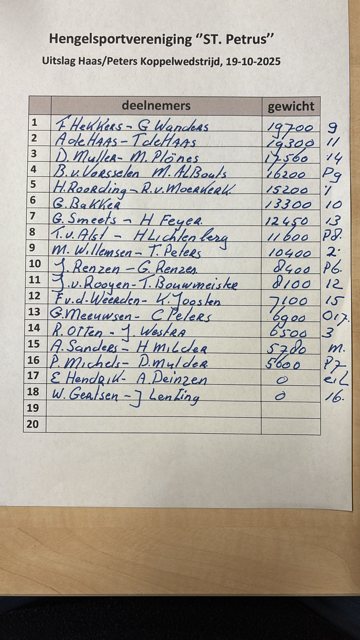 Hengelsportvereniging "ST. Petrus"
Uitslag Haas/Peters Koppelwedstrijd, 19-10-2025
deelnemers gewicht
1 F Hekkers - G Wanders 19700 9
2 A de HAAS - T de HAAS 19300 11
3 D. Muller - M. Plönes 17560 14
4 B. v. Vorsselen M. Al Bouls 16200 P9
5 H. Roording - R.v. Moerkerk 15200 1
6 G. Bakker 13300 10
7 G. Smeets - H Feyer 12450 13
8 T. v. Alst - H Lichtenberg 11600 P8.
9 M. Willemsen - T. Peters 10400 2.
10 J. Renzen - G. Renzen 8400 P6.
11 J. v. Rooyen - T. Bouwmeister 8100 12
12 F. v. d. Weerden - K. Joosten 7100 15
13 G. Meeuwsen - C. Peters 6900
14 R. Otten - J. Westra 6500 3
15 A. Sanders - H Milder 5780 m.
16 P. Michels - D. Mulder 5600 P7
17 E Hendrik - A. Deinzen 0
18 W. Gertsen - J Lenting 0 16.
19
20